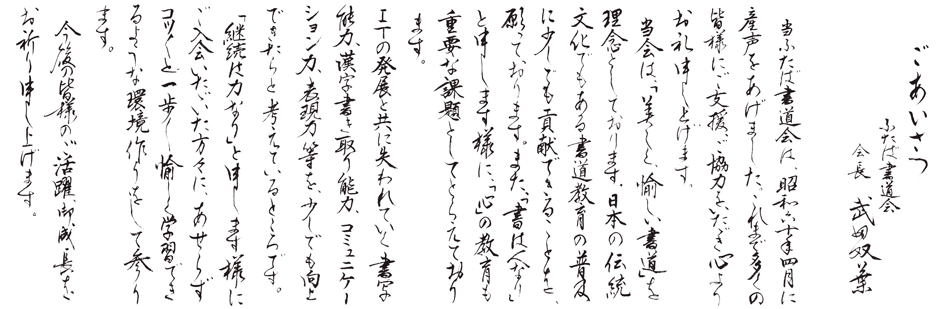 ごあいさつ
ふたば書道会
会長 武田双葉
当ふたば書道会は、昭和六十年四月に
産声をあげました。これまで多くの
皆様にご支援、ご協力をいただき心より
お礼申し上げます。
当会は、「美しく、愉しい書道」を
理念としております。日本の伝統
文化でもある書道教育の普及
に少しでも貢献できることを、
願っております。また、「書は人なり」
と申します様に、「心」の教育も
重要な課題としてとらえており
ます。
ITの発展と共に失われていく書写
能力、漢字書き取り能力、コミュニケー
ション力、表現力等を、少しでも向上
できたらと考えているところです。
「継続は力なり」と申します様に
ご入会いただいた方々に、あせらず
コツコツと一歩一歩愉しく学習でき
るような環境作りをして参り
ます。
今後の皆様のご活躍、御成長を
お祈り申し上げます。